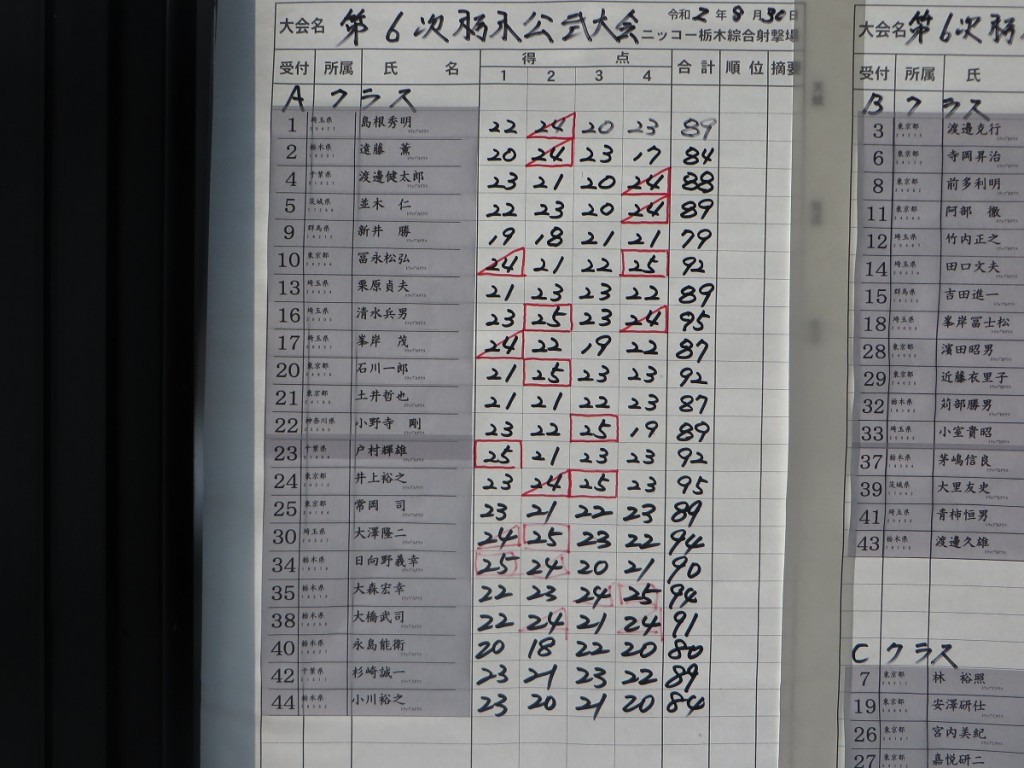 大会名 第6次栃木公式大会 令和2年8月30日
ニッコー栃木綜合射撃場
受付 所属 氏名 得点 合計 順位 摘要
1 2 3 4
A クラス
1 埼玉県 島根秀明 22 24 20 23 89
2 栃木県 遠藤 薫 20 24 23 17 84
4 千葉県 渡邊健太郎 23 21 20 24 88
5 茨城県 並木 仁 22 23 20 24 89
9 群馬県 新井 勝 19 18 21 21 79
10 東京都 冨永松弘 24 21 22 25 92
13 埼玉県 栗原貞夫 21 23 23 22 89
16 埼玉県 清水兵男 23 25 23 24 95
17 埼玉県 峯岸 茂 24 22 19 22 87
20 東京都 石川一郎 21 25 23 23 92
21 東京都 土井哲也 21 21 22 23 87
22 神奈川県 小野寺 剛 23 22 25 19 89
23 千葉県 戸村輝雄 25 21 23 23 92
24 東京都 井上裕之 23 24 25 23 95
25 東京都 常岡 司 23 21 22 23 89
30 埼玉県 大澤隆二 24 25 23 22 94
34 栃木県 日向野義幸 25 24 20 21 90
35 栃木県 大森宏幸 22 23 24 25 94
38 栃木県 大橋武司 22 24 21 24 91
40 栃木県 永島能衛 20 18 22 20 80
42 千葉県 杉崎誠一 23 21 23 22 89
44 栃木県 小川裕之 23 20 21 20 84
大会名 第6次栃
受付 所属 氏
B クラス
3 東京都 渡邊克行
6 東京都 寺岡昇治
8 東京都 前多利明
11 東京都 阿部 徹
12 埼玉県 竹内正之
14 埼玉県 田口文夫
15 群馬県 吉田進一
18 埼玉県 峯岸冨士松
28 東京都 濱田昭男
29 東京都 近藤衣里子
32 栃木県 苅部勝男
33 埼玉県 小室貴昭
37 栃木県 茅嶋信良
39 茨城県 大里友史
41 埼玉県 青柿恒男
43 栃木県 渡邊久雄
C クラス
7 東京都 林 裕照
19 東京都 安澤研仕
26 東京都 宮内美紀
27 東京都 嘉悦研二